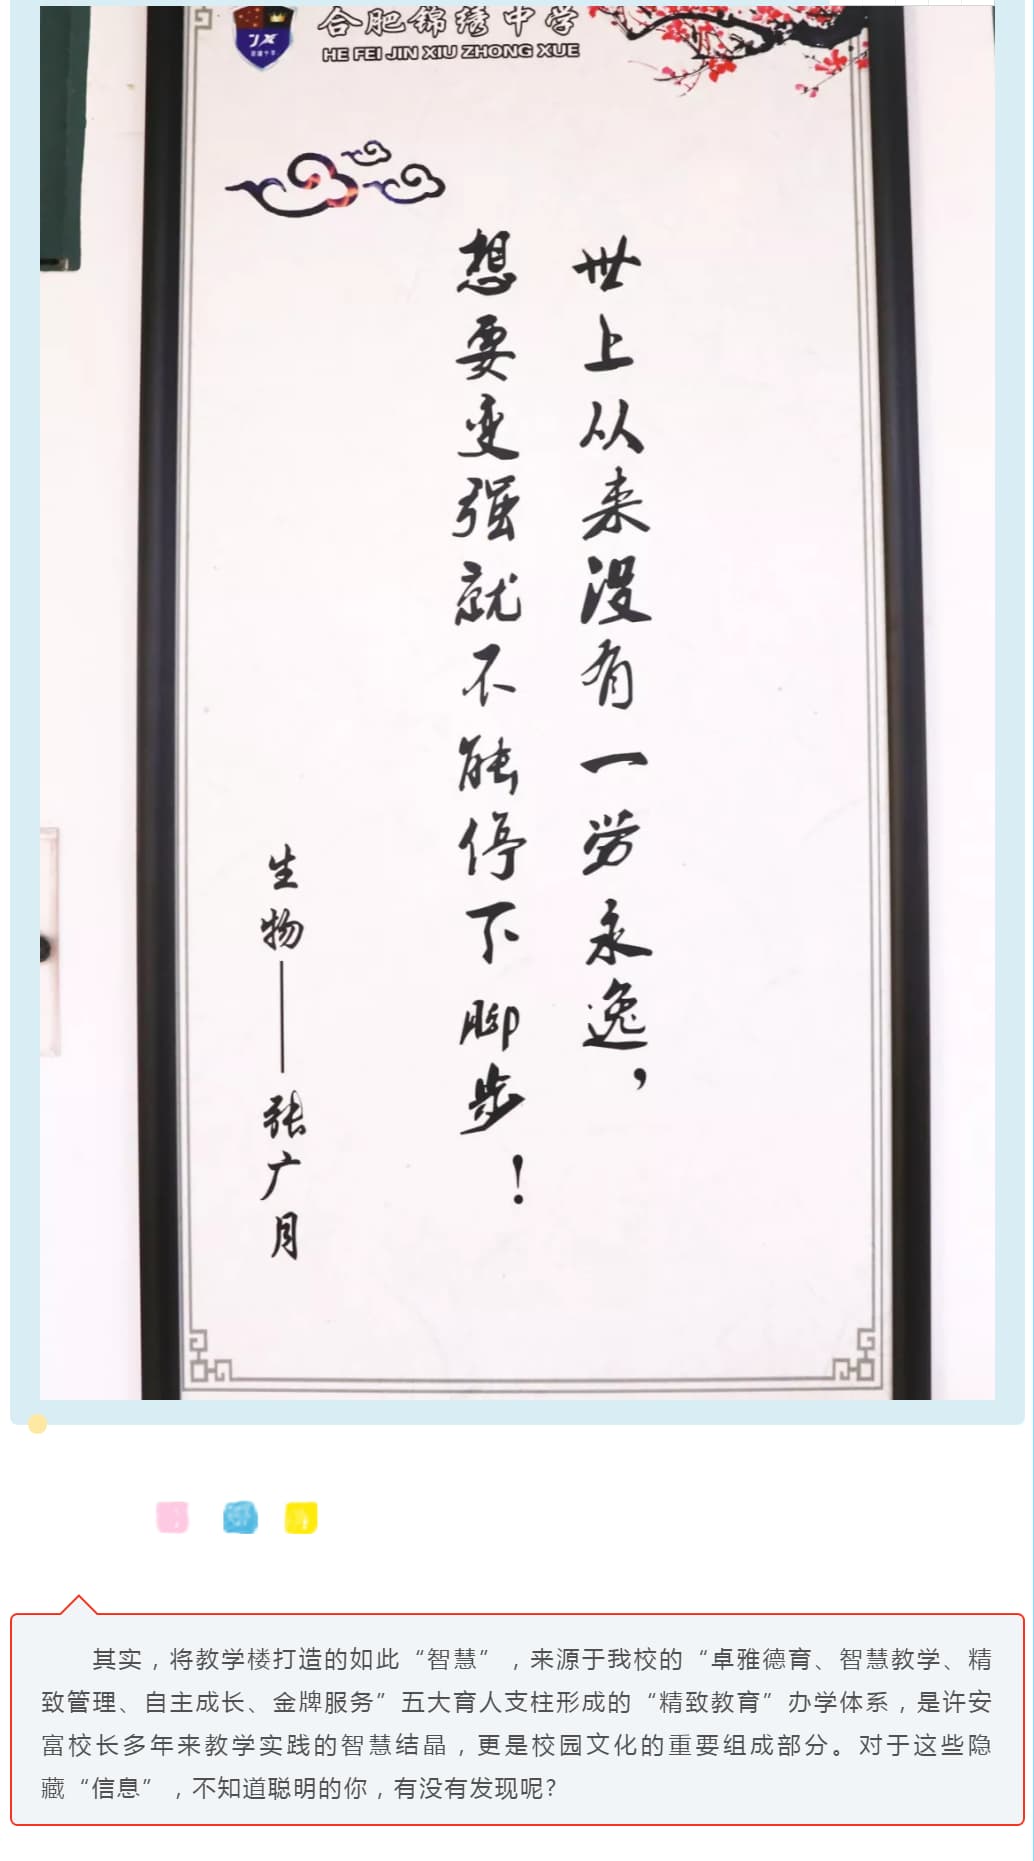 JX
合肥锦绣中学
HE FEI JIN XIU ZHONG XUE
世上从来没有一劳永逸，
想要变强就不能停下脚步！
生物——张广月
其实，将教学楼打造的如此“智慧”，来源于我校的“卓雅德育、智慧教学、精
致管理、自主成长、金牌服务”五大育人支柱形成的“精致教育”办学体系，是许安
富校长多年来教学实践的智慧结晶，更是校园文化的重要组成部分。对于这些隐
藏“信息”，不知道聪明的你，有没有发现呢？